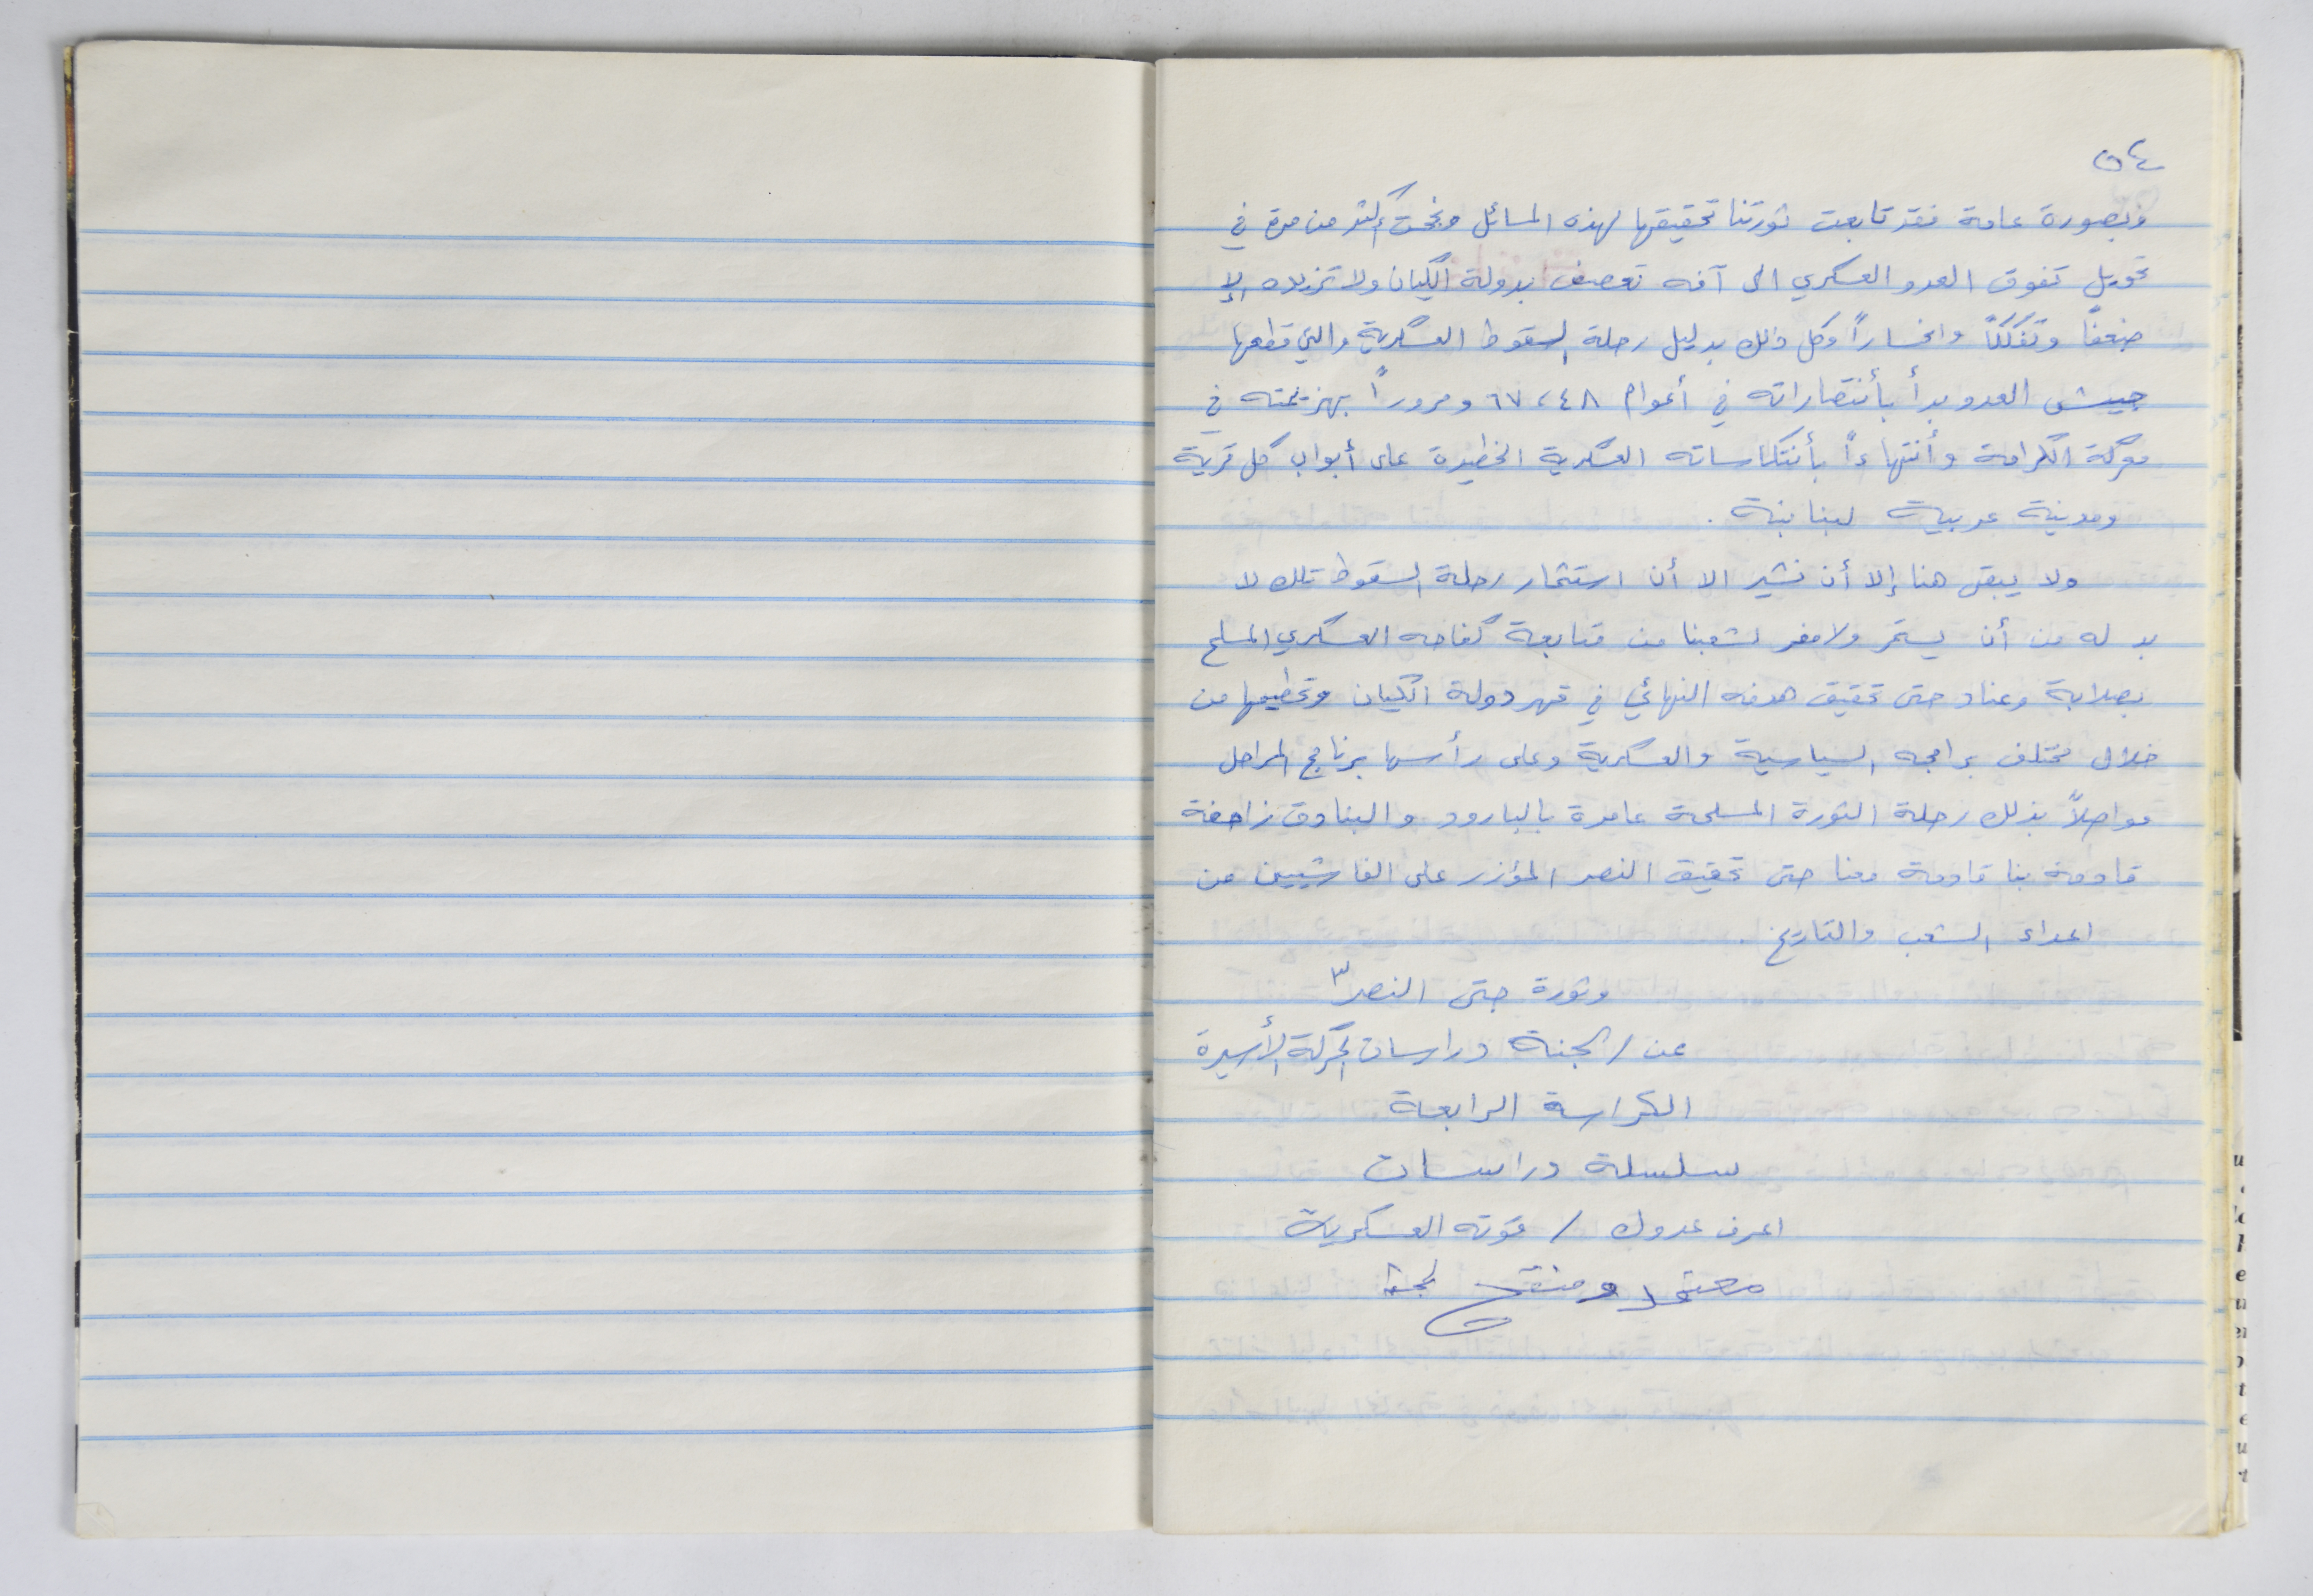 ٥٤
وبصورة عامة فقد تابعت ثورتنا تحقيقها لهذه المسائل ونجحت أكثر من مرة في
تحويل تفوق العدو العسكري الى آفه تعصف بدولة الكيان ولا تزيده إلا
ضعفاً وتفككاً وانحساراً وكل ذلك بدليل رحلة السقوط العسكرية والتي قطعها
جيش العدو بدأ بأنتصاراته في أعوام ٤٨، ٦٧ ومروراً بهزيمته في
معركة الكرامة وأنتهاءاً بأنتكاساته العسكرية الخطيرة على أبواب كل قرية
ومدينة عربية لبنانية .
ولا يبقى هنا إلا أن نشير الا أن استثمار رحلة السقوط تلك لا
بد له من أن يستمر ولا مفر لشعبنا من متابعة كفاحه العسكري المسلح
بصلابة وعناد حتى تحقيق هدفه النهائي في قهر دولة الكيان وتحطيمها من
خلال مختلف برامجه السياسية والعسكرية وعلى رأسها برنامج المراحل
مواصلاً بذلك رحلة الثورة المسلحة عامرة بالبارود والبنادق زاحفة
قادمة بنا قادمة معنا حتى تحقيق النصر المؤزر على الفاشيين من
اعداء الشعب والتاريخ .
وثورة حتى النصر
عن / لجنة دراسات الحركة الأسيرة
الكراسة الرابعة
سلسلة دراسات
اعرف عدوك / قوته العسكرية
معتمد ومنقح لجنة